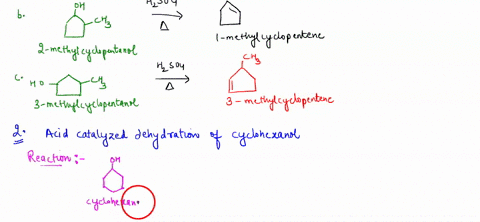 OH
H2SO4
b.
CH3
Δ
2-methylcyclopentanol
1-methylcyclopentene
CH3
c. HO
CH3
H2SO4
Δ
3-methylcyclopentanol
3-methylcyclopentene
2. Acid catalyzed dehydration of cyclohexanol
Reaction:-
OH
cyclohexan